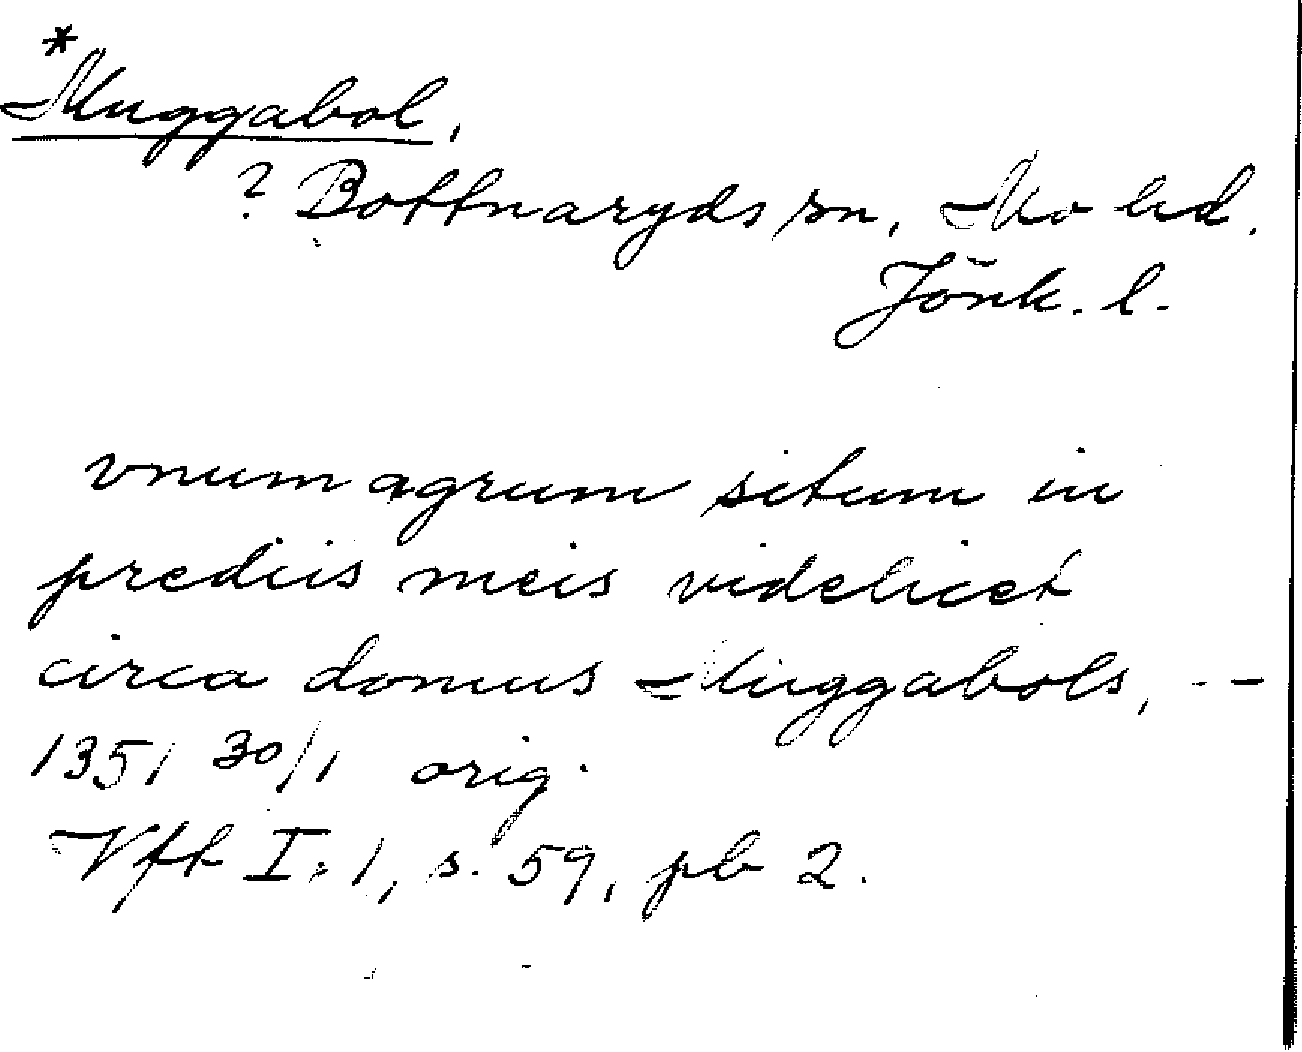 *Muggabol,
? Bottnaryds sn, Mo hd.
Jönk. l.
vnum agrum situm in
prediis meis videlicet
circa domus Muggabols, --
1351 30/1 orig.
Vft I:1, s. 59, pb 2.